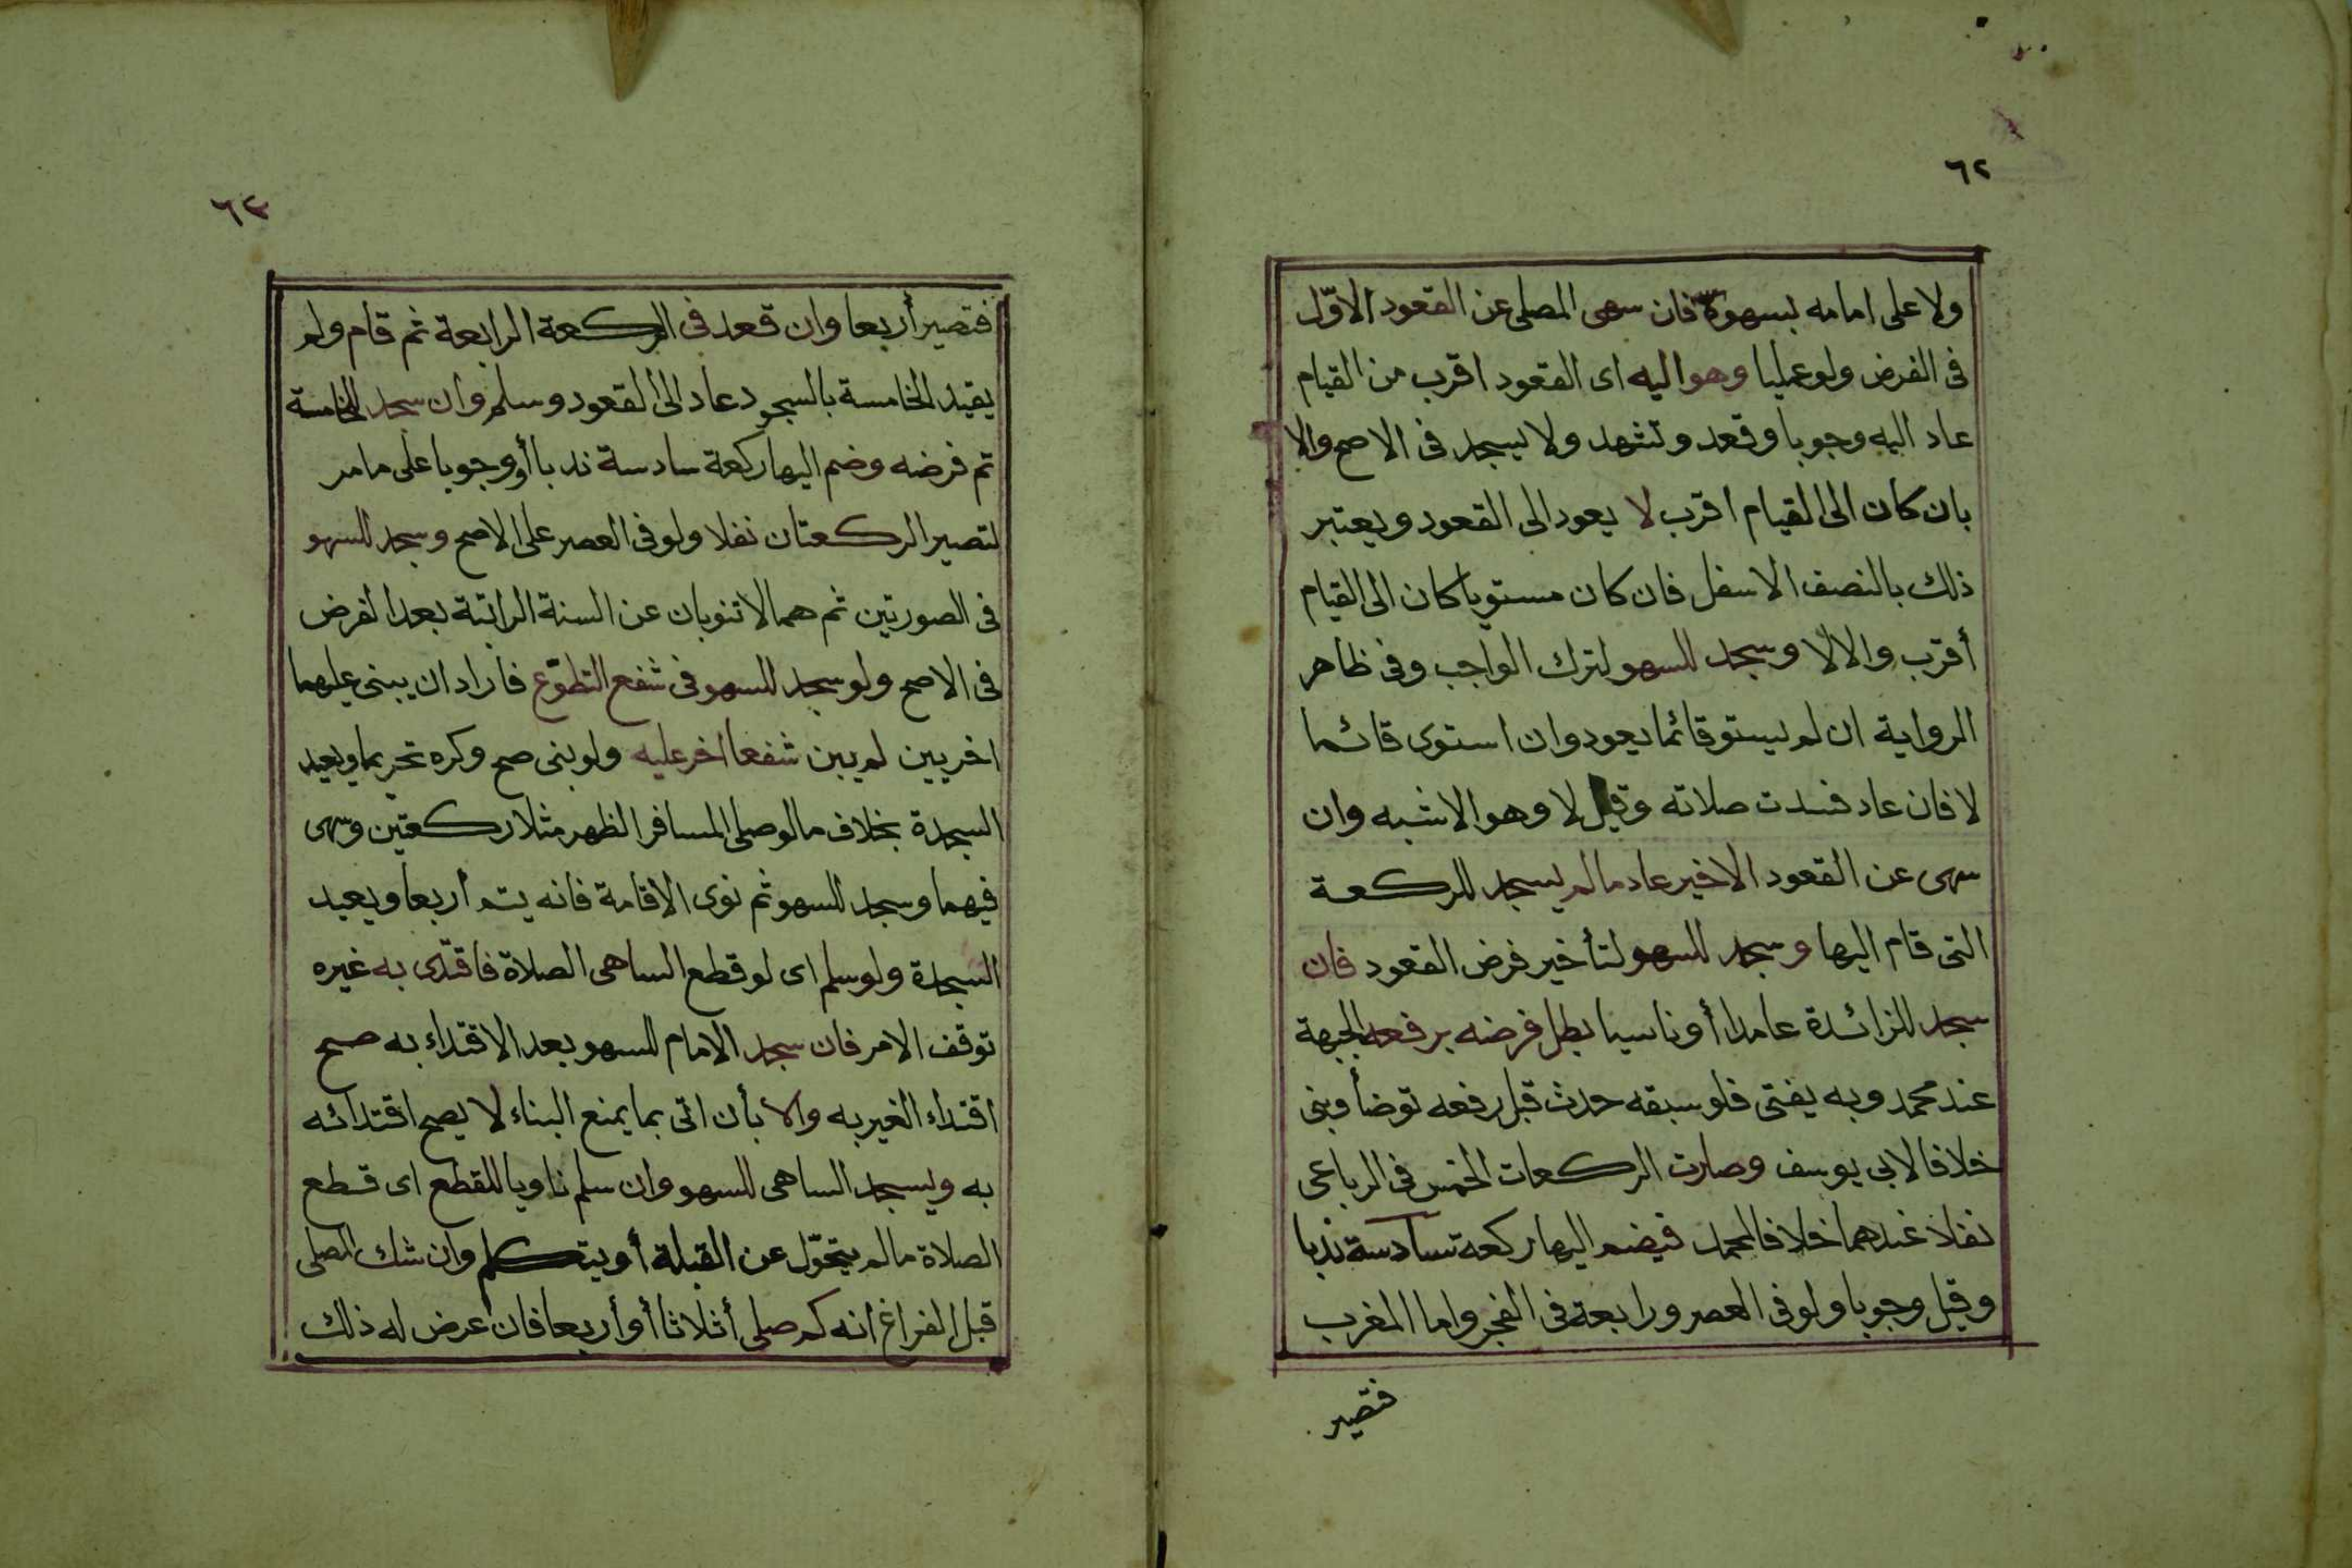 ٦٢
ولا على امامه بسهوه فان سهى المصلى عن القعود الاوّل
فى الفرض ولو عمليا وهو اليه اى القعود اقرب من القيام
عاد اليه وجوبا وقعد وتشهد ولا يسجد فى الاصح والا
بان كان الى القيام اقرب لا يعود الى القعود ويعتبر
ذلك بالنصف الاسفل فان كان مستويا كان الى القيام
أقرب والا لا وسجد للسهو لترك الواجب وفى ظاهر
الرواية ان لم يستو قائما يعود وان استوى قائما
لا فان عاد فسدت صلاته وقيل لا وهو الاشبه وان
سهى عن القعود الاخير عاد مالم يسجد للركعة
التى قام اليها وسجد للسهو لتأخير فرض القعود فان
سجد للزائدة عامدا أو ناسيا بطل فرضه برفعه الجبهة
عند محمد وبه يفتى فلو سبقه حدث قبل رفعه توضأ وبنى
خلافا لابى يوسف وصارت الركعات الخمس فى الرباعى
نفلا عندهما خلافا لمحمد فيضم اليها ركعة سادسة ندبا
وقيل وجوبا ولو فى العصر ورابعة فى الفجر واما المغرب
فتصير
٦٣
فتصير أربعا وان قعد فى الركعة الرابعة ثم قام ولم
يقيد الخامسة بالسجود عاد الى القعود وسلم وان سجد للخامسة
تم فرضه وضم اليها ركعة سادسة ندبا أو وجوبا على مامر
لتصير الركعتان نفلا ولو فى العصر على الاصح وسجد للسهو
فى الصورتين ثم هما لا تنوبان عن السنة الراتبة بعد الفرض
فى الاصح ولو سجد للسهو فى شفع التطوّع فاراد ان يبنى عليهما
اخريين لم يبن شفعا اخر عليه ولو بنى صح وكره تحريما ويعيد
السجدة بخلاف مالو صلى المسافر الظهر مثلا ركعتين وسهى
فيهما وسجد للسهو ثم نوى الاقامة فانه يتم اربعا ويعيد
السجدة ولو سلم اى لو قطع الساهى الصلاة فاقتدى به غيره
توقف الامر فان سجد الامام للسهو بعد الاقتداء به صح
اقتداء الغير به والا بأن اتى بما يمنع البناء لا يصح اقتدائه
به ويسجد الساهى للسهو وان سلم ناويا للقطع اى قطع
الصلاة مالم يتحوّل عن القبلة أو يتكلم وان شك المصلى
قبل الفراغ انه كم صلى أثلاثا أو أربعا فان عرض له ذلك